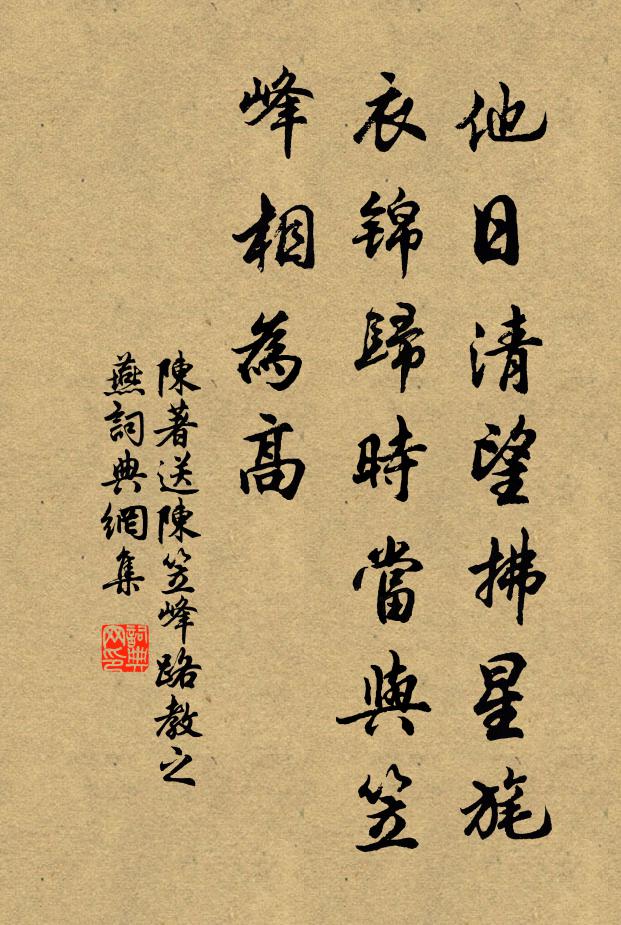 他日清望拂星旄
衣锦歸時當與笠
峰相為高
陳著送陳笠峰路教之
燕詞典網集
詞典网印